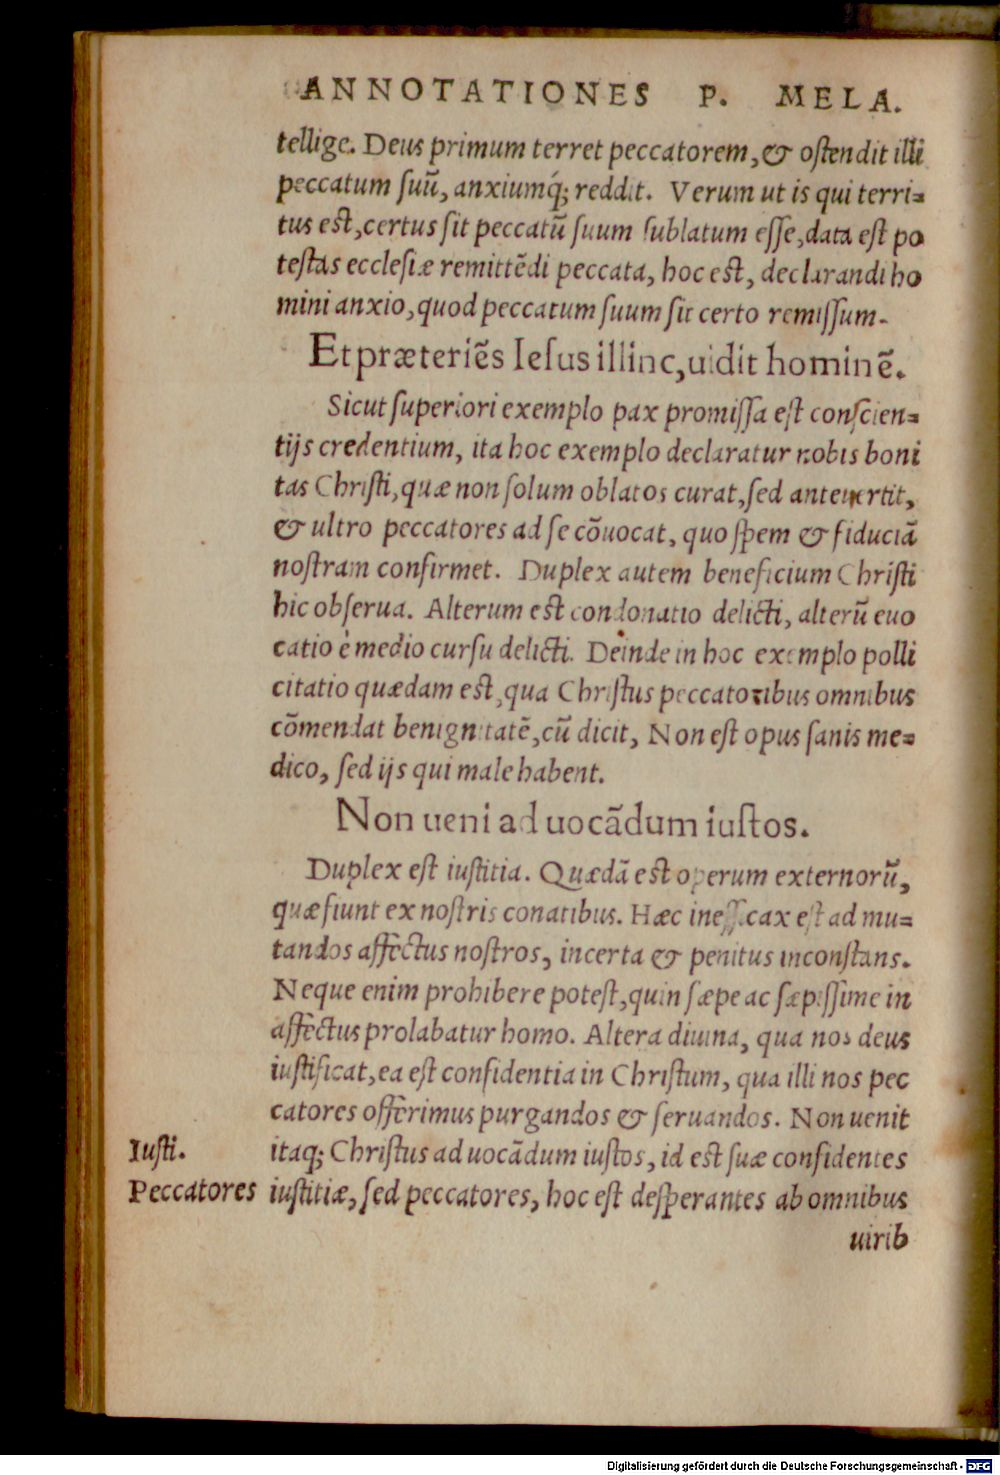 ANNOTATIONES P. MELA.
tellige. Deus primum terret peccatorem, & ostendit illi
peccatum suũ, anxiumq́; reddit. Verum ut is qui terri=
tus est, certus sit peccatũ suum sublatum esse, data est po
testas ecclesiæ remittẽdi peccata, hoc est, declarandi ho
mini anxio, quod peccatum suum sit certo remissum.
Et præteriẽs Iesus illinc, uidit hominẽ.
Sicut superiori exemplo pax promissa est conscien=
tijs credentium, ita hoc exemplo declaratur nobis boni
tas Christi, quæ non solum oblatos curat, sed anteuertit,
& ultro peccatores ad se cõuocat, quo spem & fiduciã
nostram confirmet. Duplex autem beneficium Christi
hic obserua. Alterum est condonatio delicti, alterũ euo
catio è medio cursu delicti. Deinde in hoc exemplo polli
citatio quædam est, qua Christus peccatoribus omnibus
cõmendat benignitatẽ, cũ dicit, Non est opus sanis me=
dico, sed ijs qui male habent.
Non ueni ad uocãdum iustos.
Duplex est iustitia. Quædã est operum externorũ,
quæ fiunt ex nostris conatibus. Hæc inefficax est ad mu=
tandos affectus nostros, incerta & penitus inconstans.
Neque enim prohibere potest, quin sæpe ac sæpissime in
affectus prolabatur homo. Altera diuina, qua nos deus
iustificat, ea est confidentia in Christum, qua illi nos pec
catores offerimus purgandos & seruandos. Non uenit
Iusti. itaq; Christus ad uocãdum iustos, id est suæ confidentes
Peccatores iustitiæ, sed peccatores, hoc est desperantes ab omnibus
uirib
Digitalisierung gefördert durch die Deutsche Forschungsgemeinschaft - DFG